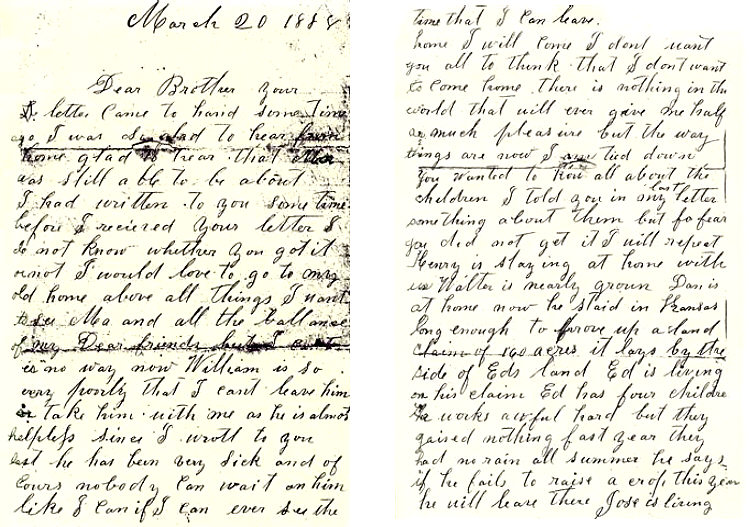 March 20 1888
Dear Brother Your
letter Came to hand some time
ago I was so glad to hear from
home glad to hear that Ma
was still able to be about
I had written to you some time
before I recieved Your letter I
do not know whether you got it
or not I would love to go to my
old home above all things I want
to see Ma and all the ballance
of my Dear friends but I
is no way now William is so
very poorly that I cant leave him
or take him with me as he is almost
helpless since I wrote to you
last he has been very sick and of
Cours nobody Can wait on him
like I Can if I can ever see the
time that I Can leave.
home I will come I dont want
you all to think that I dont want
to come home there is nothing in the
world that will ever give me half
as much pleasure but the way
tings are now I am tied down
You wanted to know all about the
children I told you in my last letter
something about them but fo fear
you did not get it I will repeat
Henry is staying at home with
us Walter is nearly grown Dan is
at home now he staid in Kansas
long enough to prove up a land
claim of 160 acres it lays by the
side of Eds land Ed is living
on his claim Ed has four childre
He works awful hard but they
gained nothing fast year they
had no rain all summer he says
if he fails to raise a crop this year
he will leave there Jose is living